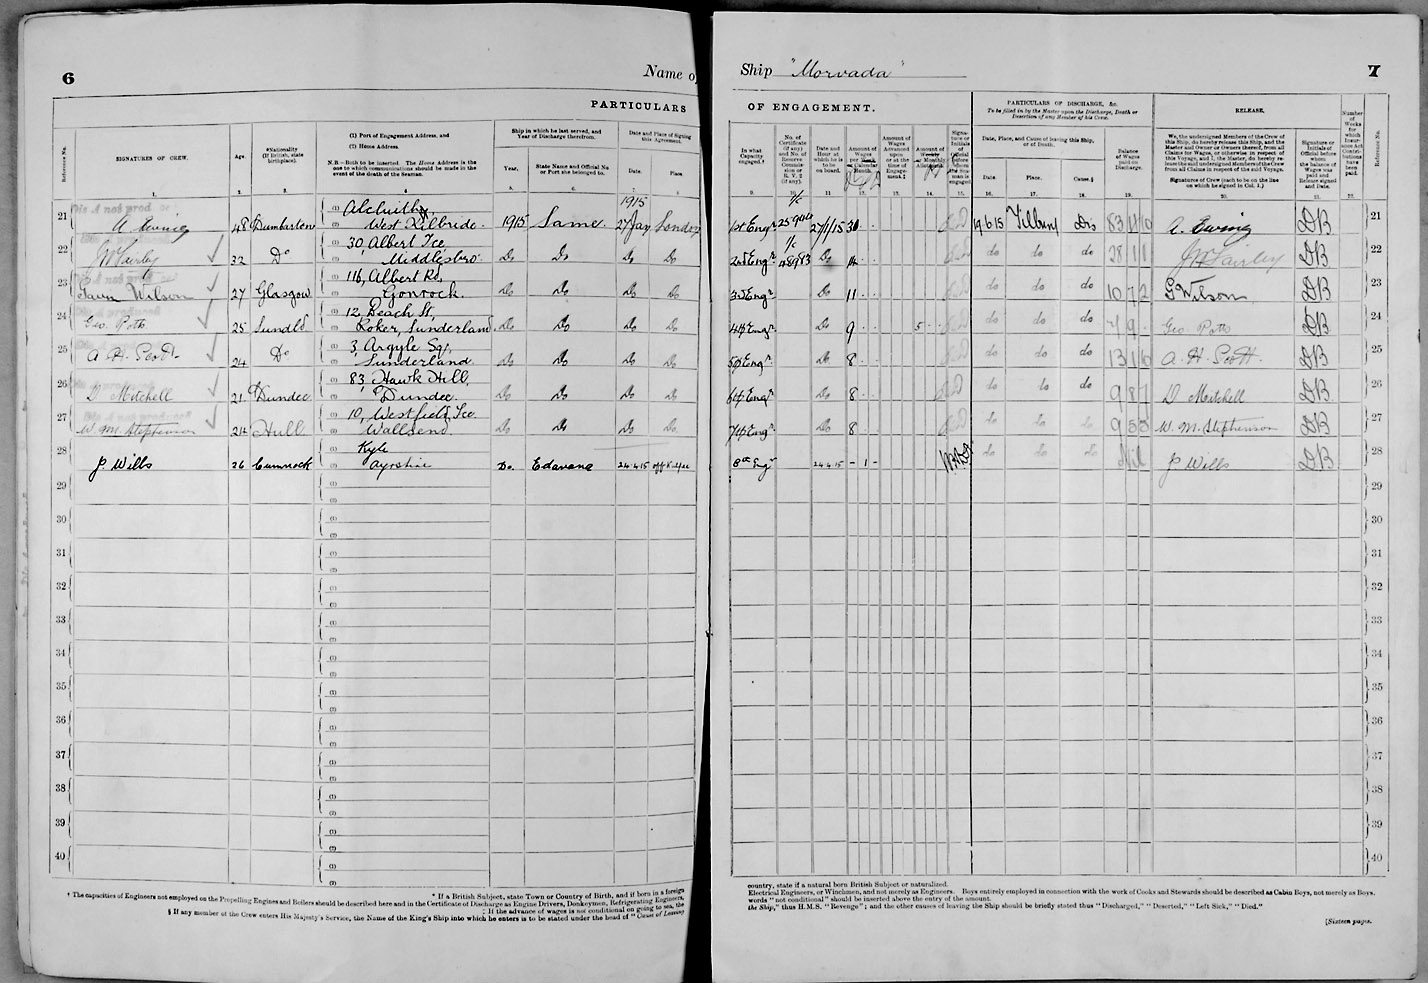 6
Name of
Ship "Morvada"
7
PARTICULARS
OF ENGAGEMENT.
Reference No.
SIGNATURES OF CREW.
Age.
*Nationality (If British, state birthplace).
(1) Port of Engagement Address, and
(2) Home Address.
N.B.—Both to be inserted The Home Address is the one to which communications should be made in the event of the death of the seaman.
Ship in which he last served, and Year of Discharge therefrom.
Year.
State Name and Official No. or Port she belonged to.
Date and Place of Signing this Agreement.
Date.
Place.
In what Capacity engaged.†
No. of Certificate (if any) and No. of Reserve Commission or R.V. 2 (if any).
Date and Hour at which he is to be on board.
Amount of Wages per Calendar Month.
Amount of Wages Advanced upon or at the time of Engagement.‡
Amount of Monthly
PARTICULARS OF DISCHARGE, &c.
To be filled in by the Master upon the Discharge, Death or Desertion of any Member of his Crew.
Date, Place, and Cause of leaving this Ship, or of Death.
Date.
Place.
Cause.§
Balance of Wages paid on Discharge.
RELEASE.
We, the undersigned Members of the Crew of this Ship, do hereby release this Ship, and the Master and Owner or Owners thereof, from all Claims for Wages, or otherwise in respect of this Voyage, and I, the Master, do hereby release the said undersigned Members of the Crew from all Claims in respect of the said Voyage.
Signatures of Crew (each to be on the line on which he signed in Col. 1.)
Signature or Initials of Official before whom the balance of Wages was paid and Release signed and Date.
Number of Weeks for which Insurance Act Contributions have been paid.
Reference No.
1. 2. 3. 4. 5. 6. 7. 8. 9. 10. 11. 12. 13. 14. 15. 16. 17. 18. 19. 20. 21. 22.
1915
21 A. Ewing 48 Dumbarton West Kilbride 1915 Same 27 Jany London 1st Engr 27/1/15 19.6.15 Tilbury Dis A. Ewing DB 21
22 J W Fairley 32 Do 30, Albert Tce, Middlesbro. Do Do Do Do 2nd Engr 48983 Do 14 do do do 28 11 1 J W Fairley DB 22
23 Gavin Wilson 27 Glasgow 116, Albert Rd, Gourock. Do Do Do Do 3rd Engr Do 11 do do do 10 7 2 G Wilson DB 23
24 Geo. Potts 25 Sundld 12, Beach St, Roker, Sunderland Do Do Do Do 4th Engr Do 9 5 do do do Geo Potts DB 24
25 A. H. Scott 24 Do 3, Argyle Sq, Sunderland. Do Do Do Do 5th Engr Do 8 do do do A. H. Scott. DB 25
26 D Mitchell 21 Dundee 83, Hawk Hill, Dundee. Do Do Do Do 6th Engr Do 8 do do do 9 8 7 D Mitchell DB 26
27 W. M. Stephenson 24 Hull 10, Westfield Tce. Wallsend. Do Do Do Do 7th Engr Do 8 do do do W. M. Stephenson DB 27
28 J Wills 26 Cumnock Kyle Ayrshire Do. Edavana 24.4.15 8th Engr 24.4.15 - 1 - do do do Nil J Wills DB 28
29 29
30 30
31 31
32 32
33 33
34 34
35 35
36 36
37 37
38 38
39 39
40 40
† The capacities of Engineers not employed on the Propelling Engines and Boilers should be described here and in the Certificate of Discharge as Engine Drivers, Donkeymen, Refrigerating Engineers,
* If a British Subject, state Town or Country of Birth, and if born in a foreign
‡ If the advance of wages is not conditional on going to sea, the
§ If any member of the Crew enters His Majesty's Service, the Name of the King's Ship into which he enters is to be stated under the head of "Cause of Leaving
country, state if a natural born British Subject or naturalized.
Electrical Engineers, or Winchmen, and not merely as Engineers. Boys entirely employed in connection with the work of Cooks and Stewards should be described as Cabin Boys, not merely as Boys.
words "not conditional" should be inserted above the entry of the amount.
the Ship," thus H.M.S. "Revenge"; and the other causes of leaving the Ship should be briefly stated thus "Discharged," "Deserted," "Left Sick," "Died."
[Sixteen pages.